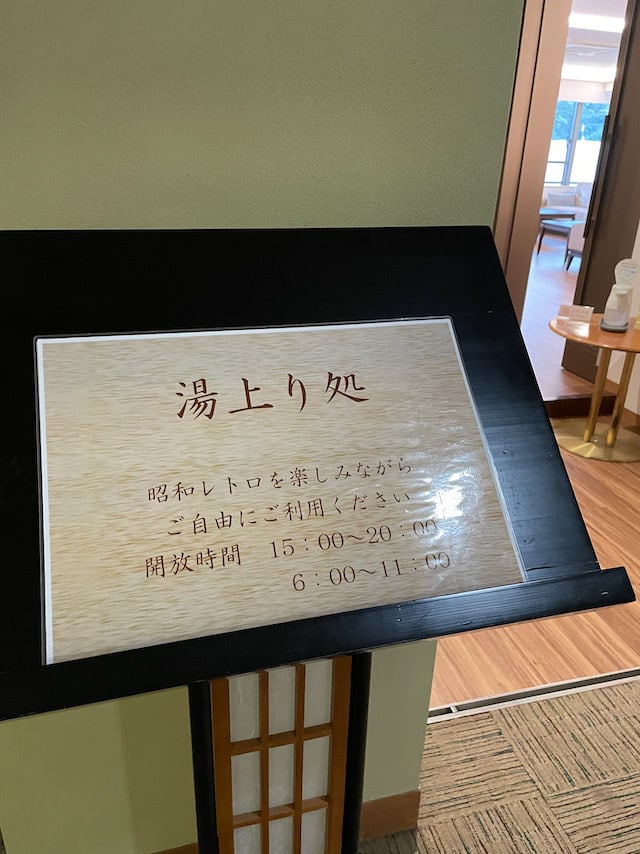 湯上り処
昭和レトロを楽しみながら
ご自由にご利用ください
開放時間　15：00～20：00
6：00～11：00